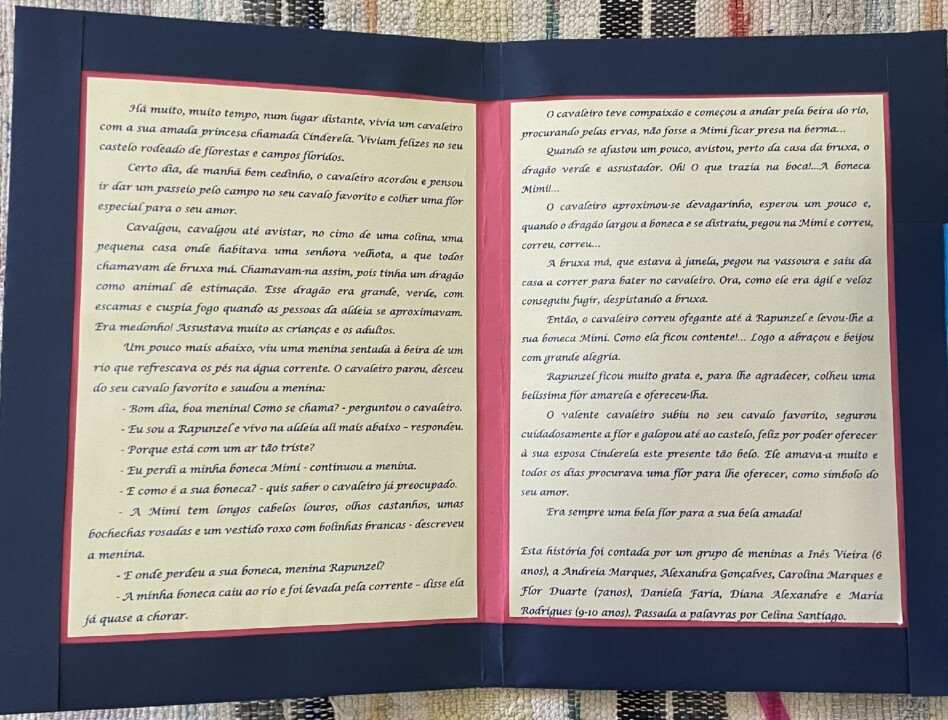 Há muito, muito tempo, num lugar distante, vivia um cavaleiro
com a sua amada princesa chamada Cinderela. Viviam felizes no seu
castelo rodeado de florestas e campos floridos.
Certo dia, de manhã bem cedinho, o cavaleiro acordou e pensou
ir dar um passeio pelo campo no seu cavalo favorito e colher uma flor
especial para o seu amor.
Cavalgou, cavalgou até avistar, no cimo de uma colina, uma
pequena casa onde habitava uma senhora velhota, a que todos
chamavam de bruxa má. Chamavam-na assim, pois tinha um dragão
como animal de estimação. Esse dragão era grande, verde, com
escamas e cuspia fogo quando as pessoas da aldeia se aproximavam.
Era medonho! Assustava muito as crianças e os adultos.
Um pouco mais abaixo, viu uma menina sentada à beira de um
rio que refrescava os pés na água corrente. O cavaleiro parou, desceu
do seu cavalo favorito e saudou a menina:
- Bom dia, boa menina! Como se chama? - perguntou o cavaleiro.
- Eu sou a Rapunzel e vivo na aldeia ali mais abaixo – respondeu.
- Porque está com um ar tão triste?
- Eu perdi a minha boneca Mimi - continuou a menina.
- E como é a sua boneca? - quis saber o cavaleiro já preocupado.
- A Mimi tem longos cabelos louros, olhos castanhos, umas
bochechas rosadas e um vestido roxo com bolinhas brancas - descreveu
a menina.
- E onde perdeu a sua boneca, menina Rapunzel?
- A minha boneca caiu ao rio e foi levada pela corrente – disse ela
já quase a chorar.
O cavaleiro teve compaixão e começou a andar pela beira do rio,
procurando pelas ervas, não fosse a Mimi ficar presa na berma...
Quando se afastou um pouco, avistou, perto da casa da bruxa, o
dragão verde e assustador. Oh! O que trazia na boca!...A boneca
Mimi!...
O cavaleiro aproximou-se devagarinho, esperou um pouco e,
quando o dragão largou a boneca e se distraiu, pegou na Mimi e correu,
correu, correu...
A bruxa má, que estava à janela, pegou na vassoura e saiu da
casa a correr para bater no cavaleiro. Ora, como ele era ágil e veloz
conseguiu fugir, despistando a bruxa.
Então, o cavaleiro correu ofegante até à Rapunzel e levou-lhe a
sua boneca Mimi. Como ela ficou contente!... Logo a abraçou e beijou
com grande alegria.
Rapunzel ficou muito grata e, para lhe agradecer, colheu uma
belissima flor amarela e ofereceu-lha.
O valente cavaleiro subiu no seu cavalo favorito, segurou
cuidadosamente a flor e galopou até ao castelo, feliz por poder oferecer
à sua esposa Cinderela este presente tão belo. Ele amava-a muito e
todos os dias procurava uma flor para lhe oferecer, como símbolo do
seu amor.
Era sempre uma bela flor para a sua bela amada!
Esta história foi contada por um grupo de meninas a Inês Vieira (6
anos), a Andreia Marques, Alexandra Gonçalves, Carolina Marques e
Flor Duarte (7anos), Daniela Faria, Diana Alexandre e Maria
Rodrigues (9-10 anos). Passada a palavras por Celina Santiago.